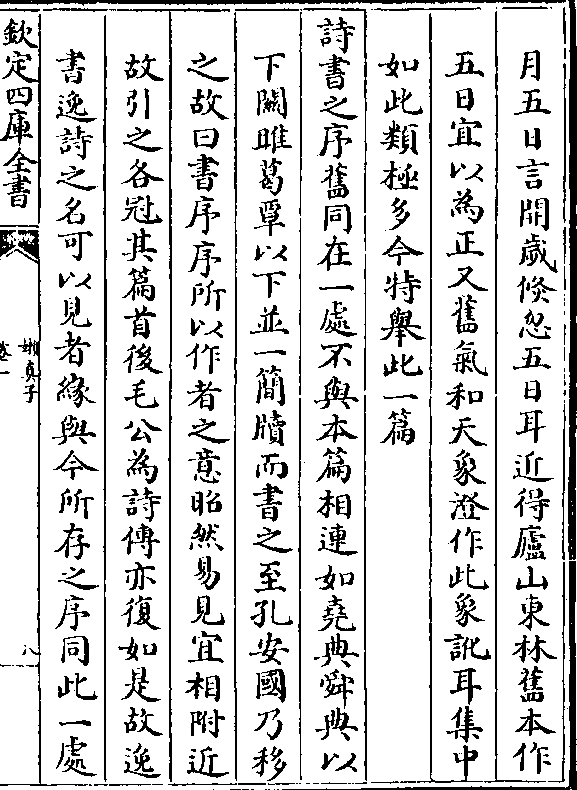 月五日言開歲倐忽五日耳近得廬山東林舊本作
五日宜以為正又舊氣和天象澄作此象訛耳集中
如此類極多今特舉此一篇
詩書之序舊同在一處不與本篇相連如堯典舜典以
下關雎葛覃以下並一簡牘而書之至孔安國乃移
之故曰書序序所以作者之意昭然易見宜相附近
故引之各冠其篇首後毛公為詩傳亦復如是故逸
書逸詩之名可以見者緣與今所存之序同此一處
欽定四庫全書
嬾真子
卷一
八